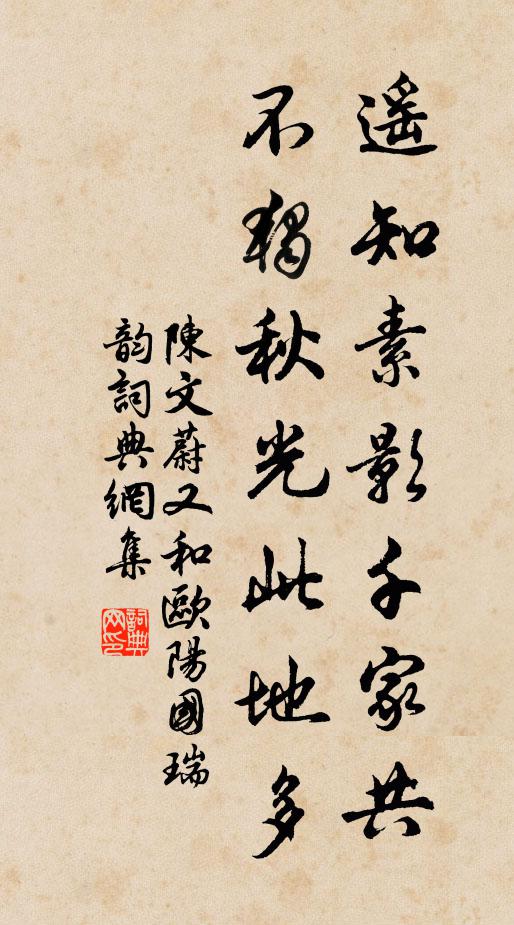 遥知素影千家共
不獨秋光此地多
陳文蔚又和歐陽國瑞
韵詞典網集
詞典網印